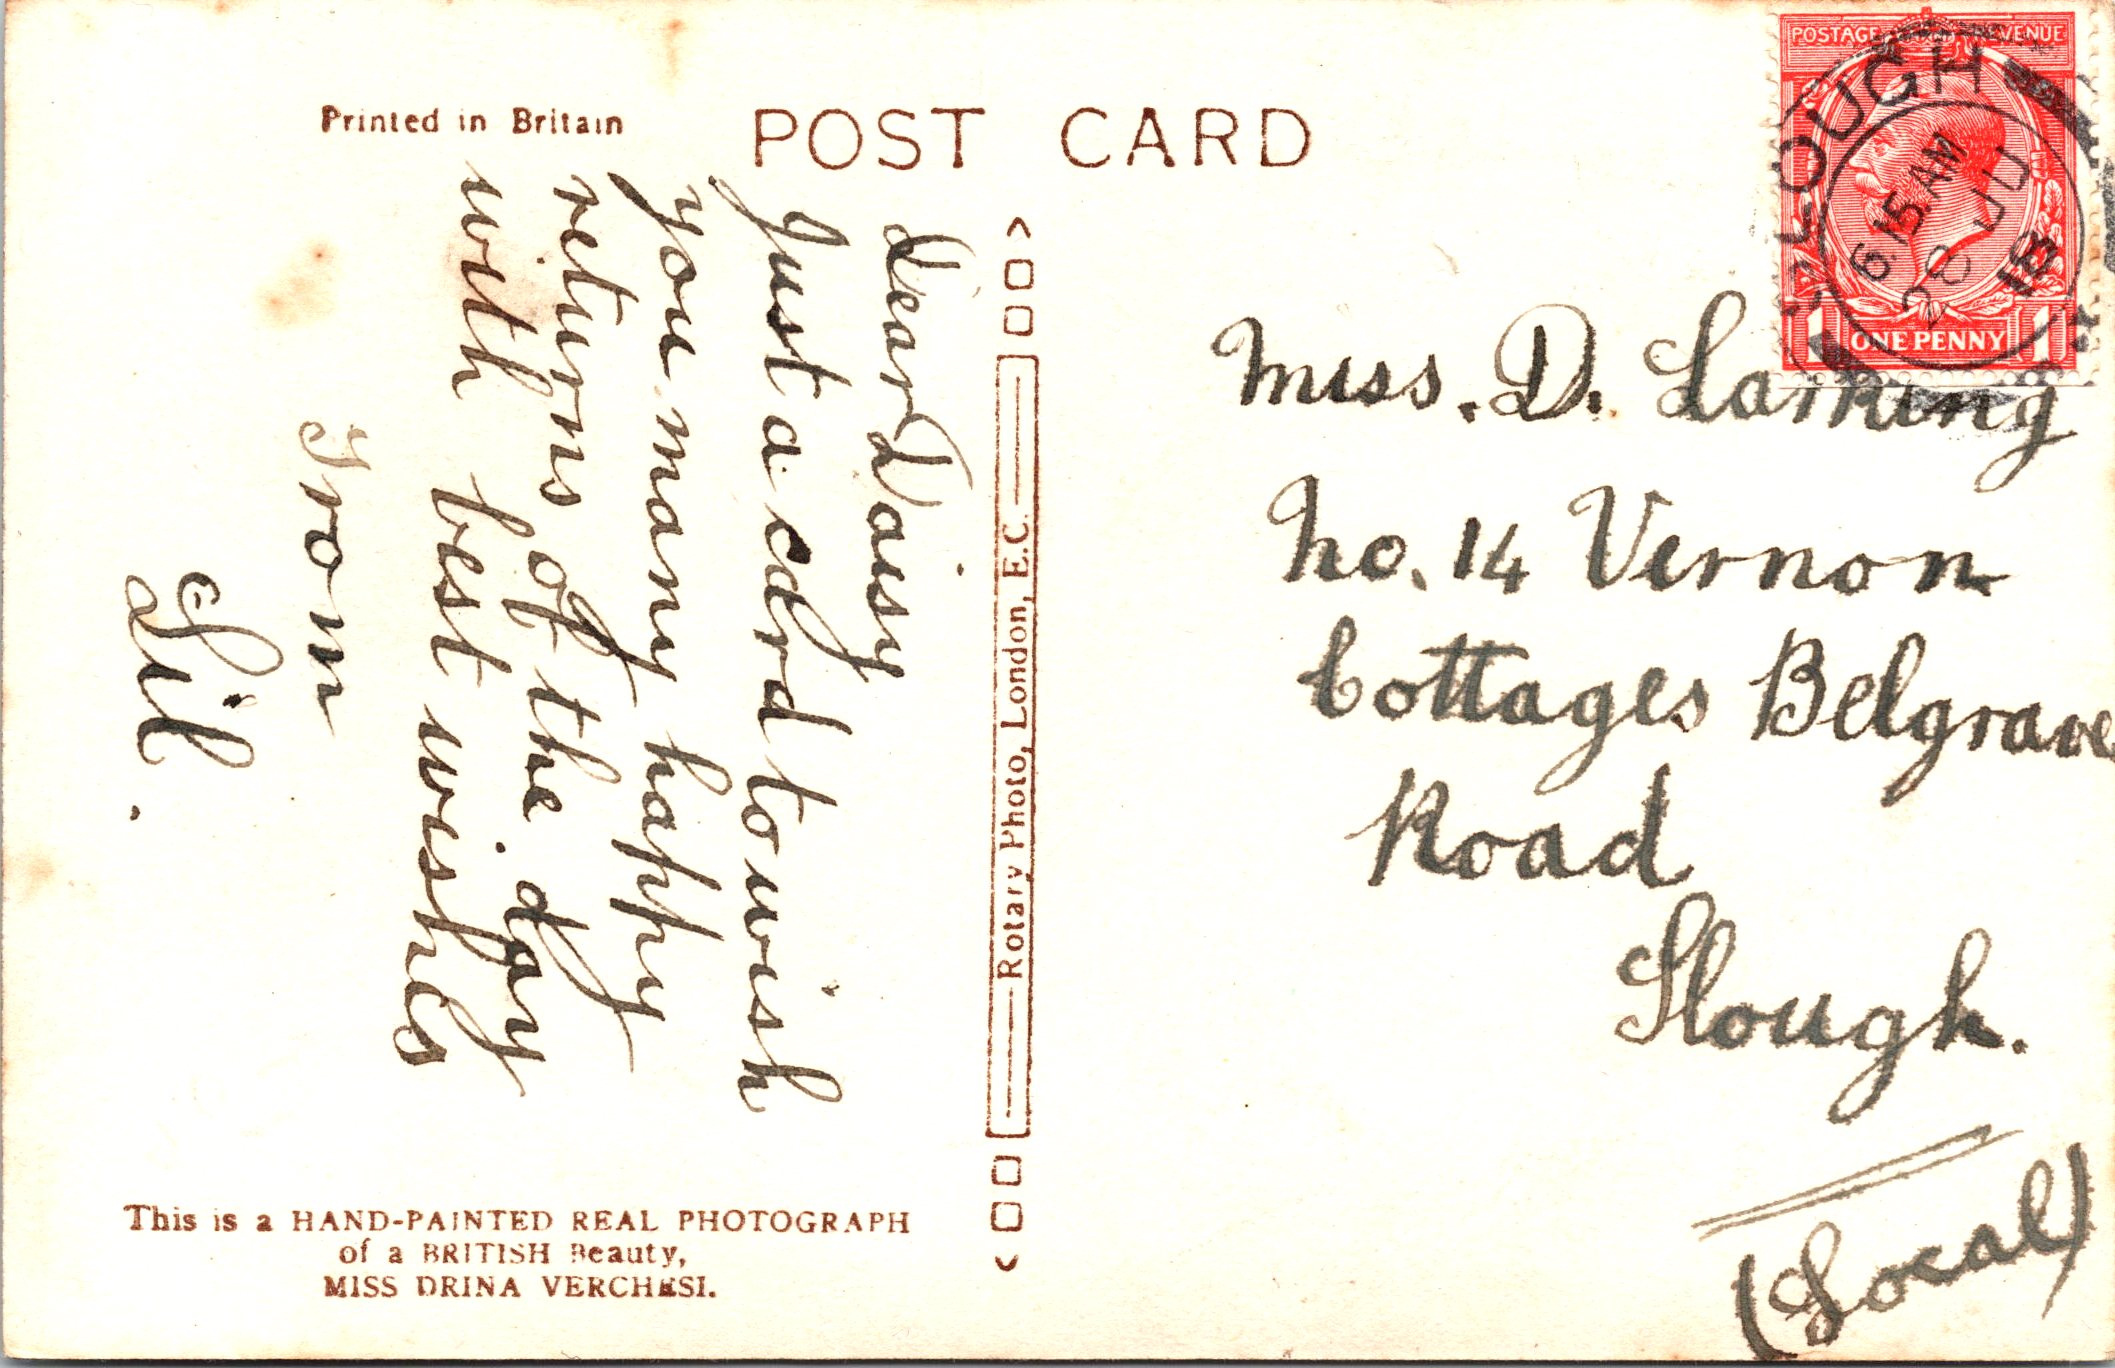 Printed in Britain
POST CARD
Dear Daisy
Just a card to wish
you many happy
returns of the day
with best wishes
From
Lil.
This is a HAND-PAINTED REAL PHOTOGRAPH
of a BRITISH Beauty,
MISS DRINA VERCHESI.
Rotary Photo, London, E.C.
POSTAGE REVENUE
SLOUGH
6.15 AM
JU
18
1 ONE PENNY 1
Miss. D. Larking
No. 14 Vernon
Cottages Belgrave
Road
Slough.
(Local)